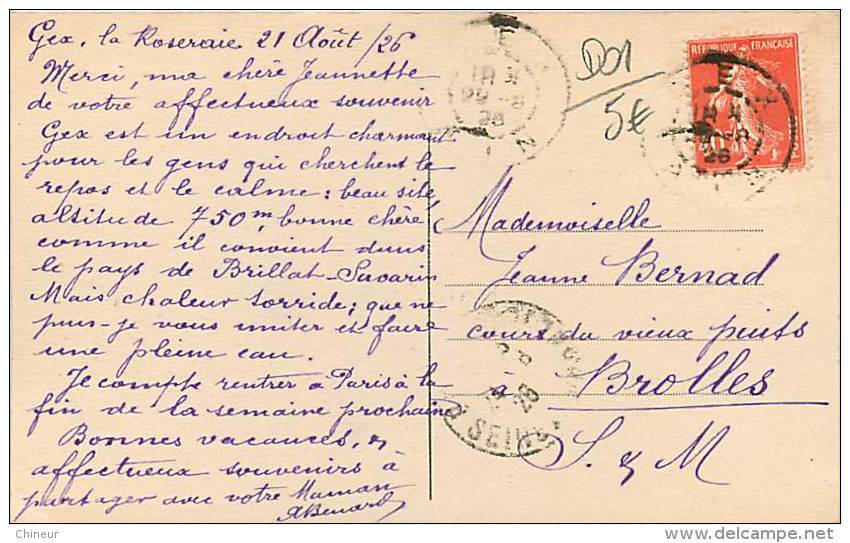 Gex, la Roseraie 21 Août /26
Merci, ma chère Jeannette
de votre affectueux souvenir
Gex est un endroit charmant
pour les gens qui cherchent le
repos et le calme : beau site,
altitude 750m, bonne chère
comme il convient dans
le pays de Brillat-Savarin
Mais chaleur torride ; que ne
puis-je vous imiter et faire
une pleine eau.
Je compte rentrer à Paris à la
fin de la semaine prochaine
Bonnes vacances, &
affectueux souvenirs à
partager avec votre Maman
ABenard
D01
5€
REPUBLIQUE FRANÇAISE
Mademoiselle
Jeanne Bernad
cours du vieux puits
à Brolles
S. & M
SEINE
26
Chineur
www.delcampe.net